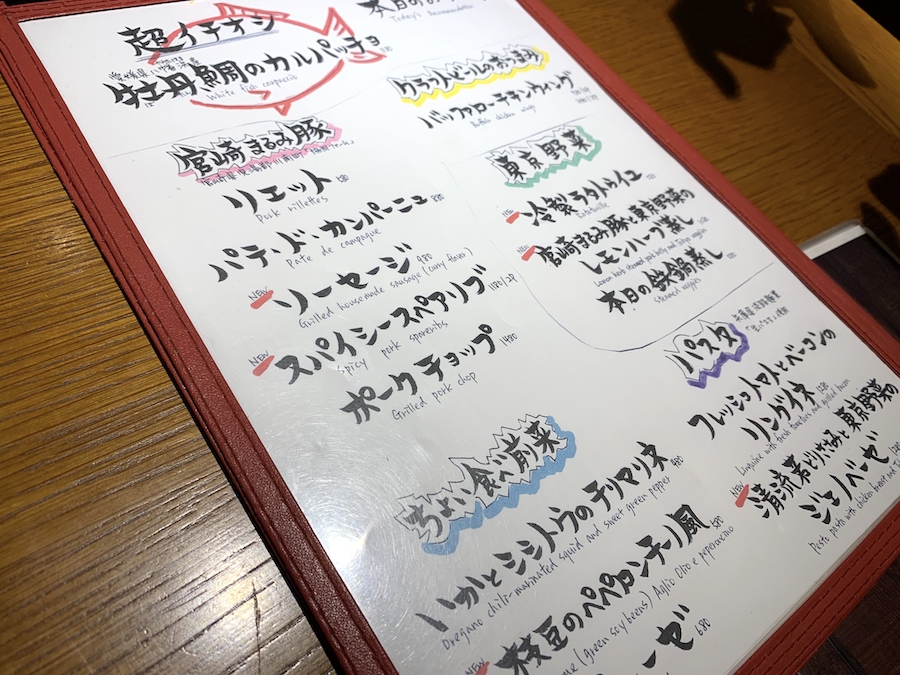 超イチオシ
本日の
Today's Recommendation
愛媛県
牡丹鯛のカルパッチョ
White fish carpaccio
クラフトビールのおつまみ
バッファローチキンウィング
Buffalo chicken wings
宮崎まるみ豚
リエット
Pork rillettes
パテ・ド・カンパーニュ
Pate de campagne
NEW ソーセージ 980
Grilled housemade sausage (curry flavor)
NEW スパイシースペアリブ 1180/2P
Spicy pork spareribs
ポークチョップ 1480
Grilled pork chop
東京野菜
NEW 冷製ラタトゥイユ
Ratatouille
NEW 宮崎まるみ豚と東京野菜の
レモンハーブ蒸し
Lemon herb steamed pork belly and Tokyo veggies
本日の鉄鍋蒸し
Steamed veggies
パスタ
兵庫県淡路麺業
フレッシュトマトとベーコンの
リングイネ
Linguine with fresh tomatoes and grilled bacon
NEW 清流若どりささみと東京野菜の
ジェノベーゼ
Pesto pasta with chicken breast and
ちょい食べ前菜
いかとシシトウのチリマリネ 480
Oregano chili marinated squid and sweet green pepper
NEW 枝豆のペペロンチーノ風
me (green soybeans) Aglio Olio e peperoncino
ーゼ 680